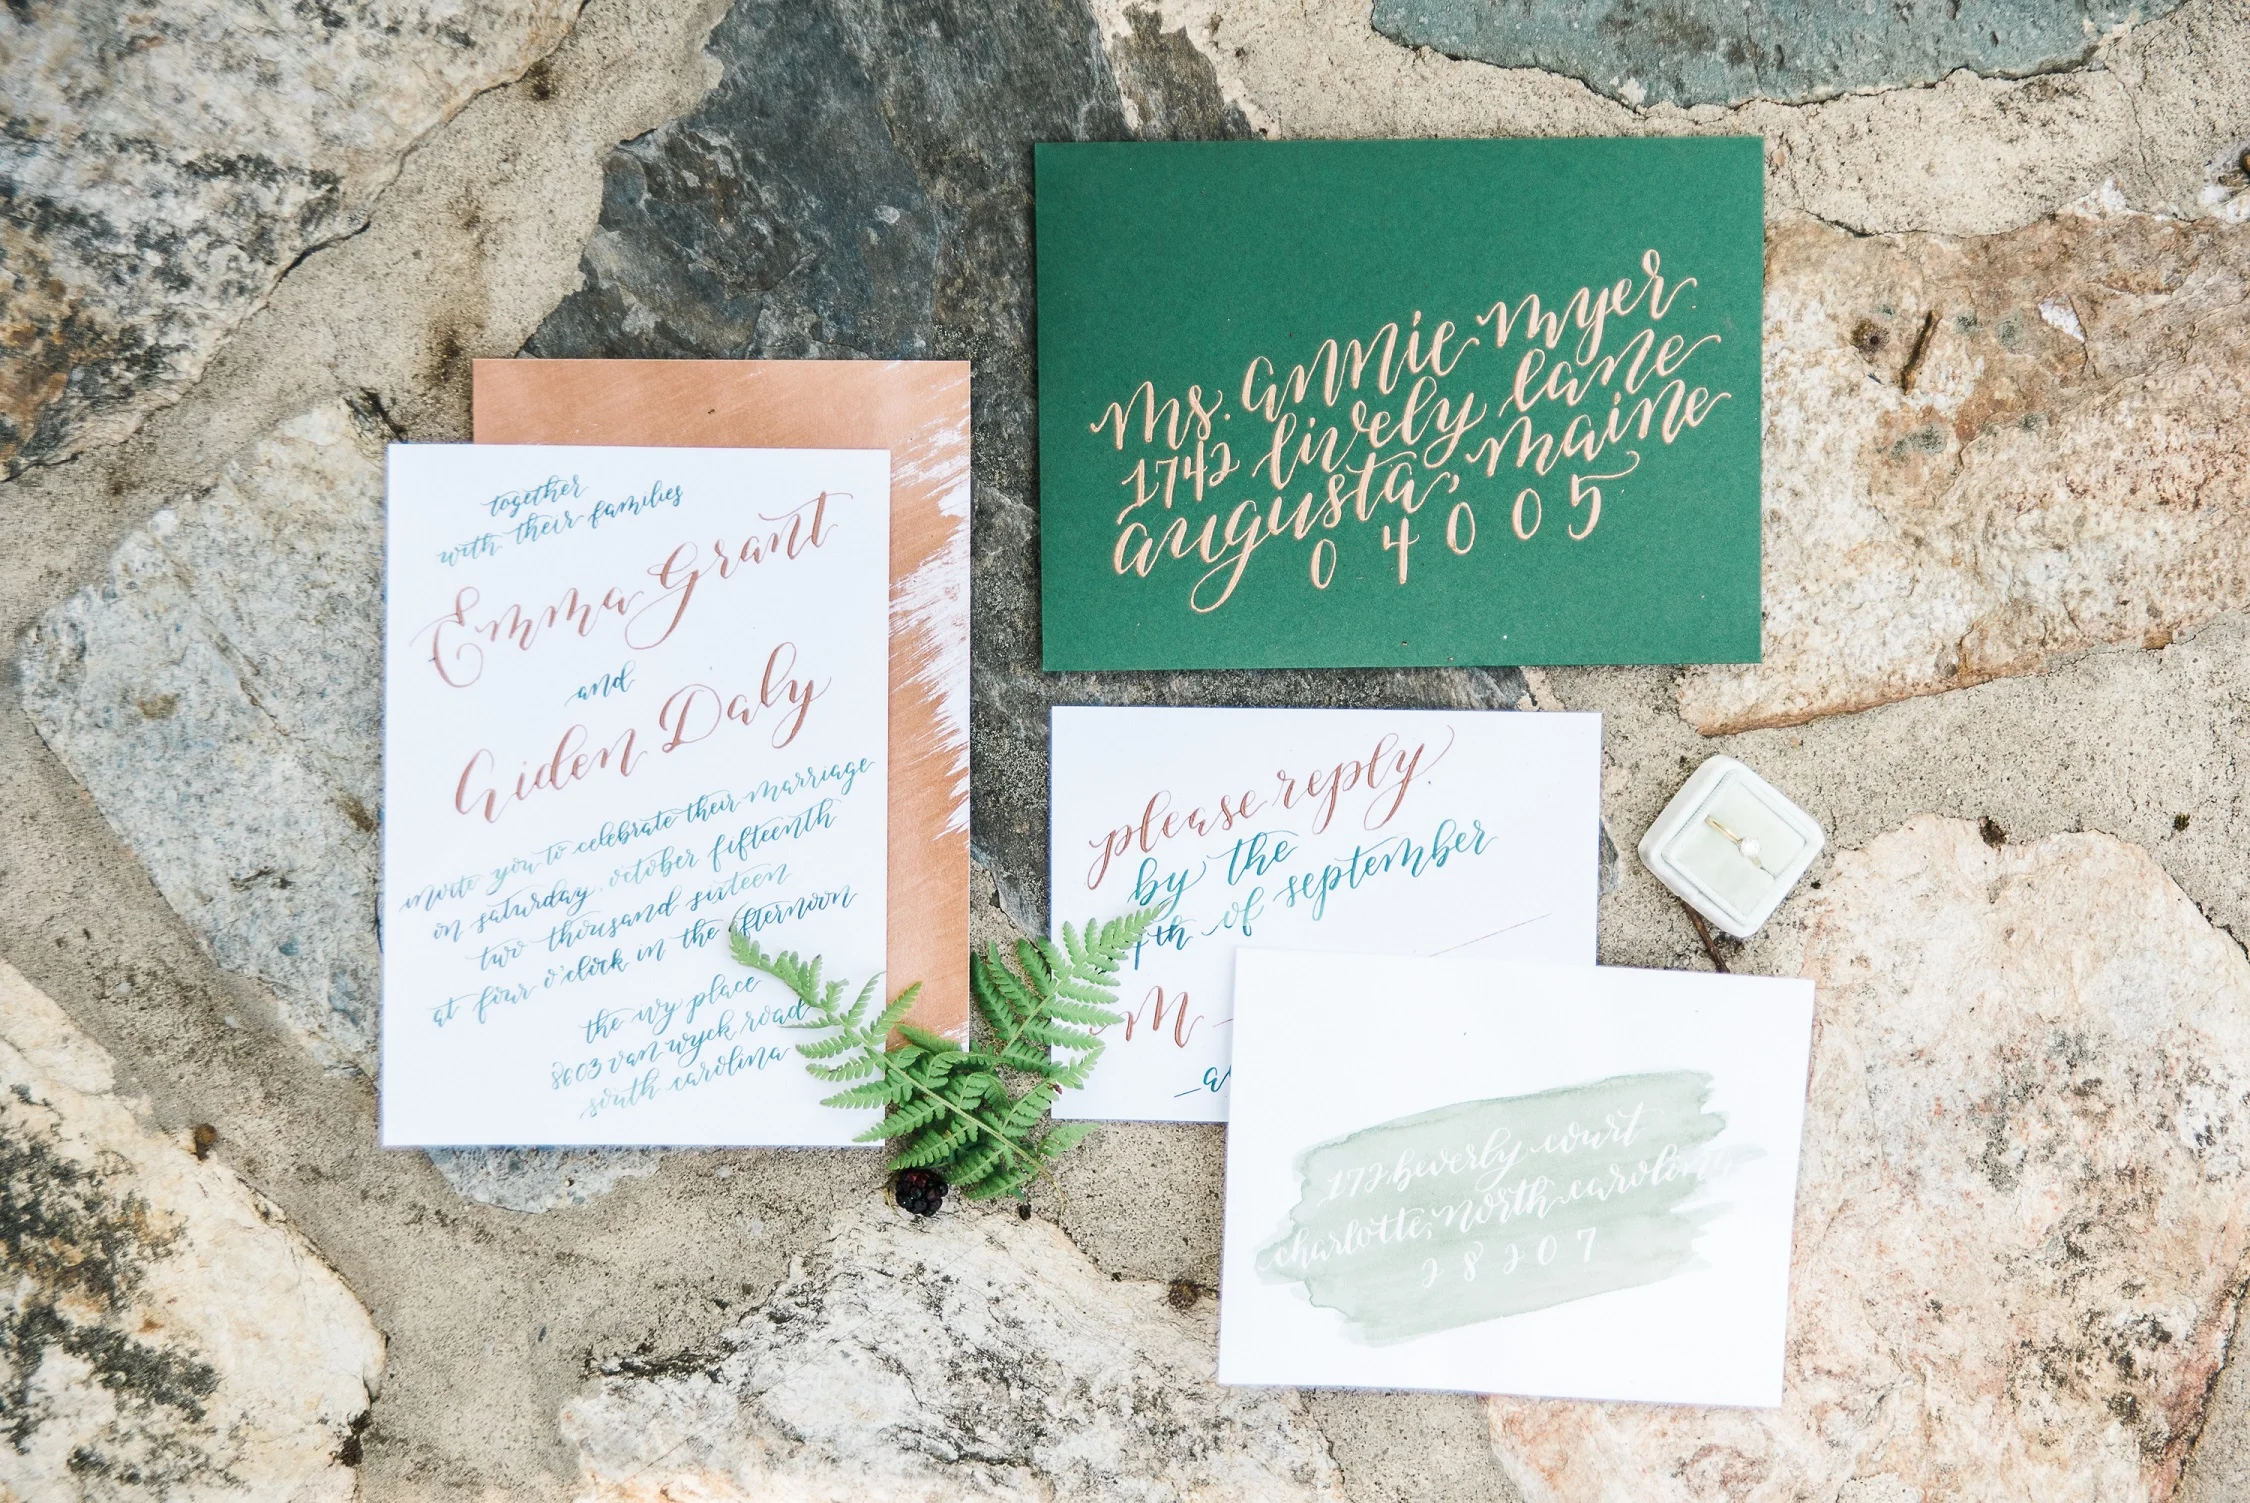 together
with their families
Emma Grant
and
Aiden Daly
invite you to celebrate their marriage
on saturday, october fifteenth
two thousand sixteen
at four o'clock in the afternoon
the ivy place
8603 van wyck road
south carolina
ms. annie myer
1742 lively lane
augusta, maine
04005
please reply
by the
th of september
M
172 beverly court
charlotte, north carolina
28207